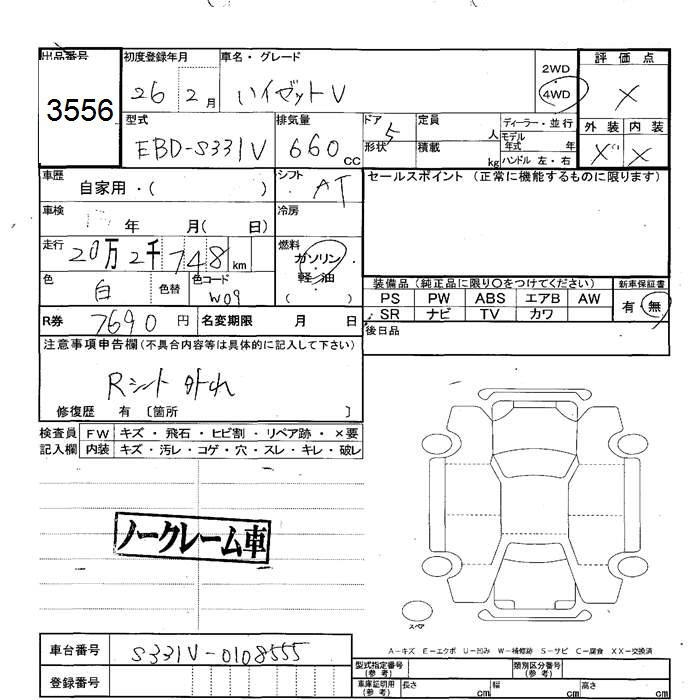 出品番号 初度登録年月 車名・グレード 評価点
3556 26年 2月 ハイゼットV 2WD 4WD X
型式 排気量 ドア 定員 ディーラー・並行 外装 内装
EBD-S331V 660CC 形状 5 人 モデル年式 年 X X
積載 kg ハンドル 左・右
車歴 自家用・( ) シフト AT セールスポイント (正常に機能するものに限ります)
車検 年 月( 日) 冷房
走行 20万2千748km 燃料 ガソリン・軽油 ( )
色 白 色替 色コード W09
装備品(純正品に限り〇をつけてください) 新車保証書
PS PW ABS エアB AW 有・無
SR ナビ TV カワ
R券 7690円 名変期限 月 日 後日品
注意事項申告欄(不具合内容等は具体的に記入して下さい)
Rシート外れ
修復歴 有 〔箇所 〕
検査員 FW キズ・飛石・ヒビ割・リペア跡・×要
記入欄 内装 キズ・汚レ・コゲ・穴・スレ・キレ・破レ
ノークレーム車
スペア
A-キズ E-エクボ U-凹み W-補修跡 S-サビ C-腐食 XX-交換済
車台番号 S331V-0108555
登録番号
型式指定番号(参考) 類別区分番号(参考)
車庫証明用(参考) 長さ cm 幅 cm 高さ cm